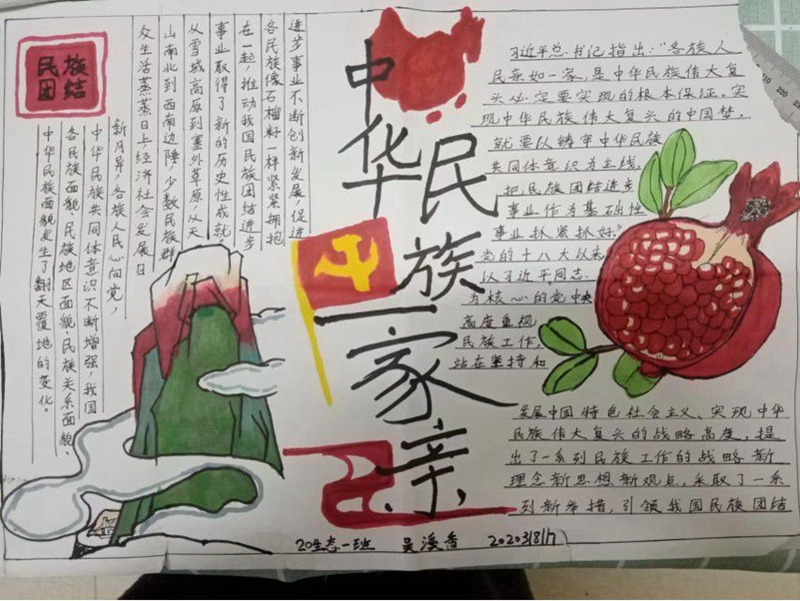 中华民族一家亲
习近平总书记指出："各族人
民亲如一家,是中华民族伟大复
兴必定要实现的根本保证。实
现中华民族伟大复兴的中国梦,
就要以铸牢中华民族
共同体意识为主线,
把民族团结进步
事业作为基础性
事业抓紧抓好。"
党的十八大以来
以习近平同志
为核心的党中央
高度重视
民族工作,
站在坚持和
发展中国特色社会主义、实现中华
民族伟大复兴的战略高度,提
出了一系列民族工作的战略新
理念新思想新观点,采取了一系
列新举措,引领我国民族团结
进步事业不断创新发展,促进
各民族像石榴籽一样紧紧拥抱
在一起,推动我国民族团结进步
事业取得了新的历史性成就
从雪域高原到塞外草原,从天
山南北到西南边陲,少数民族群
众生活蒸蒸日上,经济社会发展日
新月异,各族人民心向党,
中华民族共同体意识不断增强,我国
各民族面貌、民族地区面貌、民族关系面貌、
中华民族面貌发生了翻天覆地的变化。
民族
团结
20生态一班 吴溪香